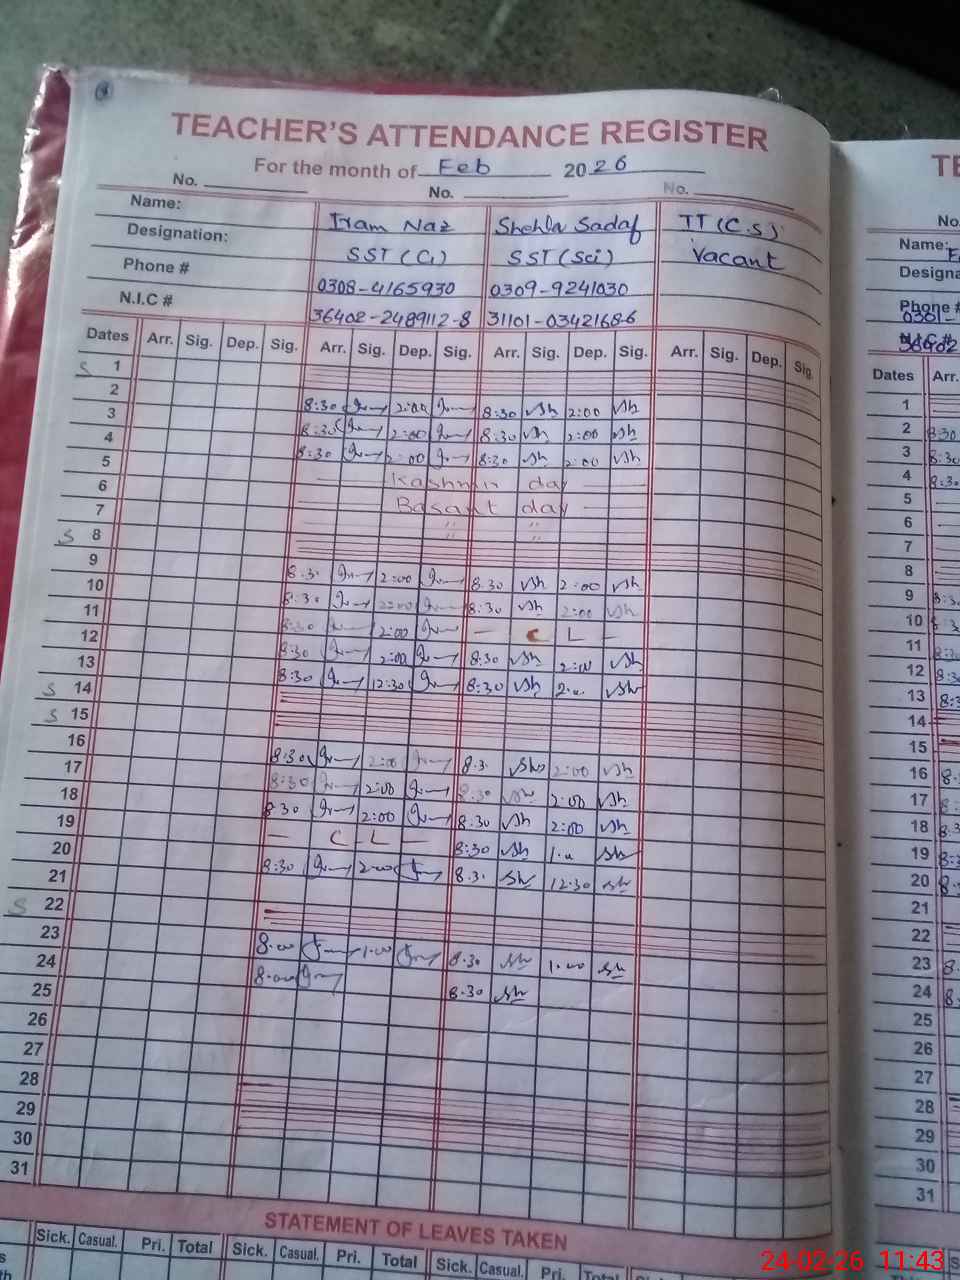 TEACHER'S ATTENDANCE REGISTER
For the month of Feb 2026
No. No. No.
Name: Iram Naz Shehla Sadaf TT (C.S)
Designation: SST (G) SST (Sci) Vacant
Phone # 0308-4165930 0309-9241030
N.I.C # 36402-2489112-8 31101-0342168-6
Dates Arr. Sig. Dep. Sig. Arr. Sig. Dep. Sig. Arr. Sig. Dep. Sig. Arr. Sig. Dep. Sig.
S 1
2 8:30 2:00 8:30 Sh 2:00 Sh
3 8:30 2:00 8:30 Sh 2:00 Sh
4 8:30 2:00 8:30 Sh 2:00 Sh
5 Kashmir day
6 Basant day
7 " "
S 8
9 8:30 2:00 8:30 Sh 2:00 Sh
10 8:30 2:00 8:30 Sh 2:00 Sh
11 8:30 2:00 — C L —
12 8:30 2:00 8:30 Sh 2:00 Sh
13 8:30 12:30 8:30 Sh Sh
S 14
S 15
16 8:30 2:00 8:3. Sh 2:00 Sh
17 8:30 2:00 8:30 Sh 2:00 Sh
18 8:30 2:00 8:30 Sh 2:00 Sh
19 — C L — 8:30 Sh Sh
20 8:30 2:00 8.3. Sh 12:30 Sh
21
S 22
23 8.00 1.00 8.30 Sh 1.00 Sh
24 8.00 8.30 Sh
25
26
27
28
29
30
31
STATEMENT OF LEAVES TAKEN
Sick. Casual. Pri. Total Sick. Casual. Pri. Total Sick. Casual. Pri. Total Sick.
No.
Name:
Designa
Phone #
0301-
36402
Dates Arr.
1
2 8:30
3 8:30
4 8:30
5
6
7
8
9 8:3
10 8:3
11 8:3
12 8:3
13 8:3
14
15
16 8.
17 8:
18 8:3
19 8:3
20 8.
21
22
23 8.
24 8.
25
26
27
28
29
30
31
24-02-26 11:43